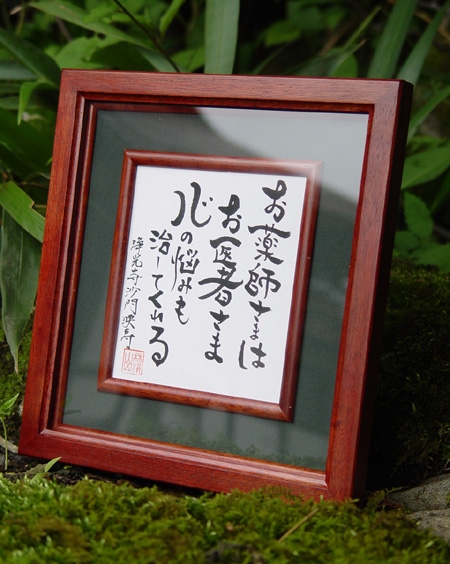 お薬師さまは
お医者さま
心の悩みも
治してくれる
浄光寺沙門映寿